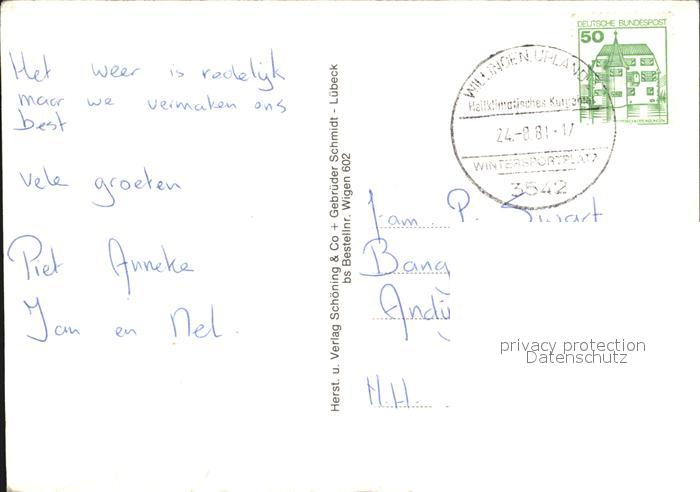 Het weer is redelijk
maar we vermaken ons
best
vele groeten
Piet Anneke
Jan en Nel.
Herst. u. Verlag Schöning & Co + Gebrüder Schmidt - Lübeck
bs Bestellnr. Wigen 602
DEUTSCHE BUNDESPOST
50
WILLINGEN, UPLAND
Heilklimatisches Kurgebiet
24.-8.81-17
WINTERSPORTPLATZ
3542
Fam. P. Swart
Bang
Andij
N.H.
privacy protection
Datenschutz